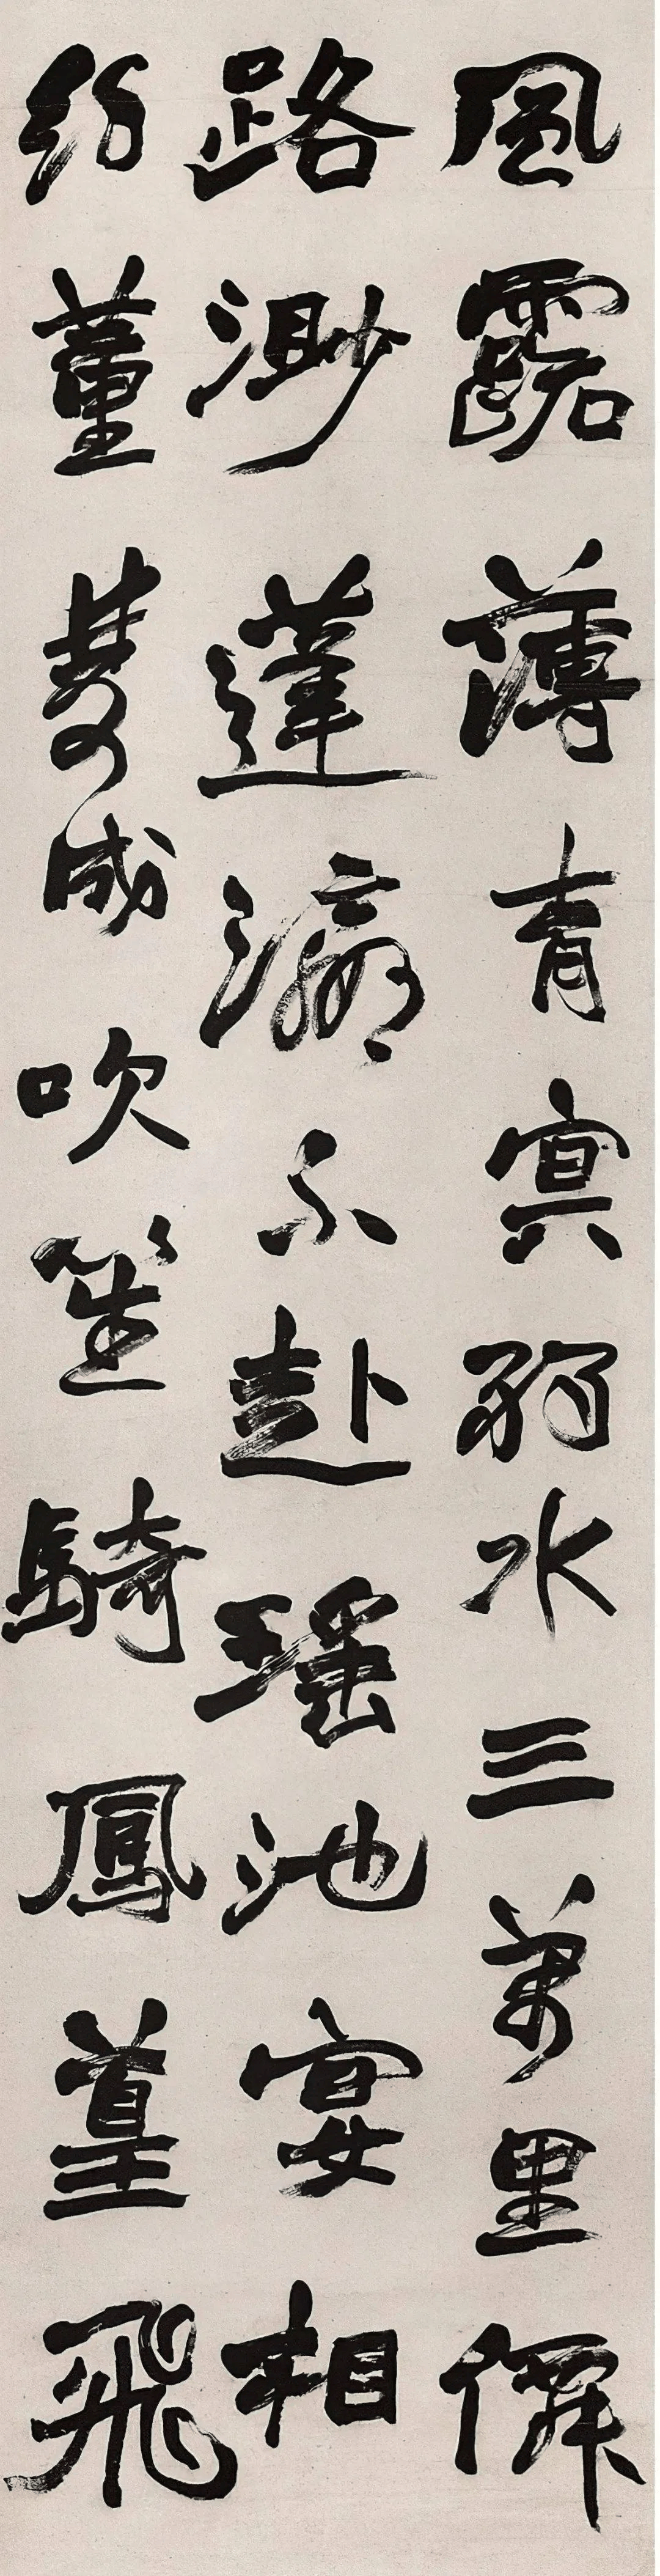 風露薄青冥弱水三萬里僊
路渺蓬瀛不赴瑤池宴相
約董雙成吹笙騎鳳皇飛